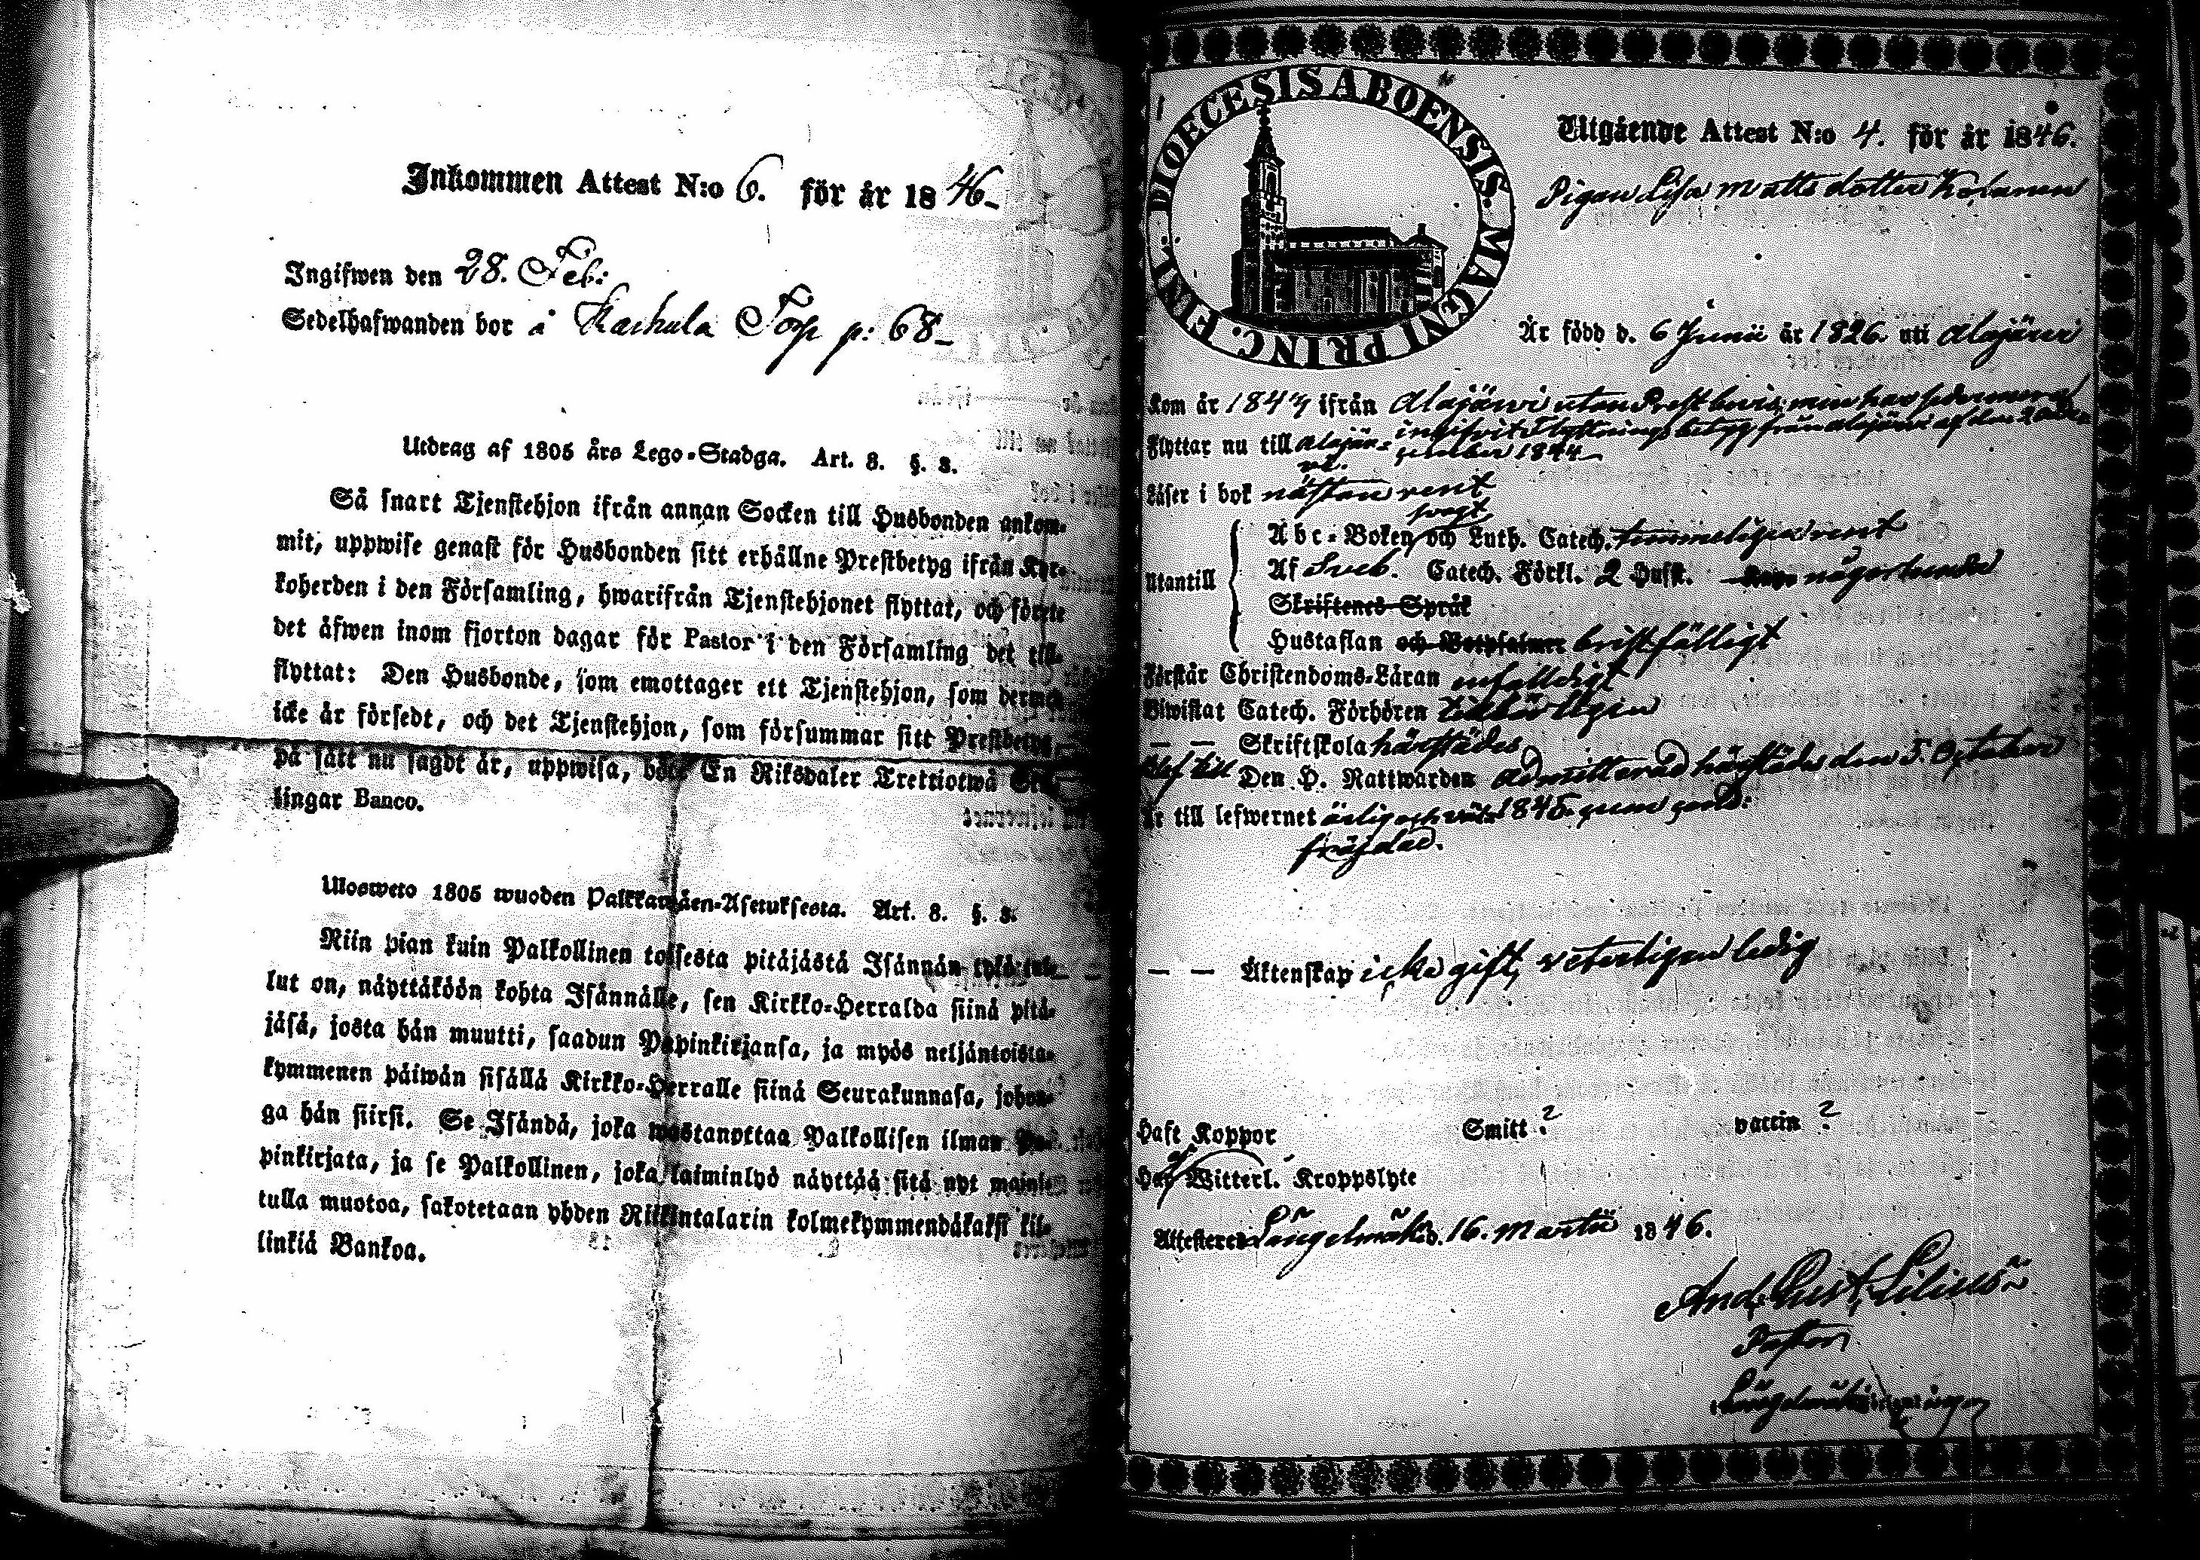 Inkommen Attest N:o 6. för år 1846
Ingifwen den 28. Feb:
Sedelhafwanden bor å Torp p: 68
Utdrag af 1805 års Lego-Stadga. Art. 8. §. 3.
Så snart Tjenstehjon ifrån annan Socken till Husbonden ankom-
mit, uppwise genast för Husbonden sitt erhållne Prestbetyg ifrån Kyr-
koherden i den Församling, hwarifrån Tjenstehjonet flyttat, och förete
det äfwen inom fjorton dagar för Pastor i den Församling det till-
flyttat: Den Husbonde, som emottager ett Tjenstehjon, som dermed
icke är försedt, och det Tjenstehjon, som försummar sitt Prestbetyg,
på sätt nu sagdt är, uppwisa, böte En Riksdaler Trettiotwå Skil-
lingar Banco.
Ulosweto 1805 wuoden Palkkawäen-Asetuksesta. Art. 8. §. 3.
Niin pian kuin Palkollinen toisesta pitäjästä Isännän tykö tul-
lut on, näyttäköön kohta Isännälle, sen Kirkko-Herralda siinä pitä-
jäsä, josta hän muutti, saadun Papinkirjansa, ja myös neljäntoista-
kymmenen päiwän sisällä Kirkko-Herralle siinä Seurakunnasa, johon-
ga hän siirsi. Se Isändä, joka wastanottaa Palkollisen ilman Pa-
pinkirjata, ja se Palkollinen, joka laiminlyö näyttää sitä nyt mainit-
tulla muotoa, sakotetaan yhden Riikintalarin kolmekymmendäkaksi kil-
linkiä Bankoa.
DIOECESIS ABOENSIS. MAGNI PRINC. FINL.
Utgående Attest N:o 4. för år 1846.
Pigan Lisa Matts dotter
Är född d. 6 Junii år 1826. uti Alajärvi
Kom år 1844 ifrån Alajärvi utan Prest bevis, men har sedermera
Flyttar nu till Alajär- ingifvit flyttnings betyg från Alajärvi af den 2
vi. 1844
Läser i bok nästan rent
svagt
Utantill
Abc-Boken och Luth. Catech. temmeligen rent
Af Sveb. Catech. Förkl. 2 Hufst. någorlunda
Skriftenes Språk
Hustaflan och Botpsalmer bristfälligt
Förstår Christendoms-Läran enfaldigt
Biwistat Catech. Förhören
Skriftskola härstädes
Blef till Den H. Nattwarden admitterad härstädes den 5. October
Är till lefwernet ärlig och väl- 1845.
frejdad.
Äktenskap icke gift, veterligen ledig
Haft Koppor Smitt? vaccin?
Haf Witterl. Kroppslyte
Attesteras Längelmäki d. 16. Martii 1846.
And. Gust. Lilius
Pastor